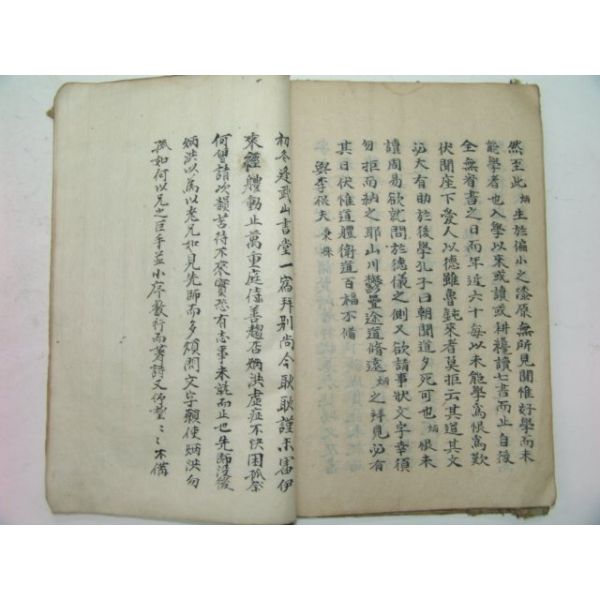 然至此炳生於偏小之漆原無所見聞惟好學而未
能學者也入學以來或讀或耕禮讀七書而止自後
全無看書之日而年近六十每以未能學爲恨爲歎
伏聞座下愛人以德雖魯鈍來者莫拒云其道其文
必大有助於後學孔子曰朝聞道夕死可也炳恨未
讀周易欲就問於德儀之側又欲請事狀文字幸須
勿拒而納之耶山川鬱疊途道脩遠炳之拜見必有
其日伏惟道體衛道百福不備
與李根夫秉株
初冬是武山書堂一窩拜別尚今耿耿謹未審伊
來經體動止萬重庭候善趨否炳洪虛症不快困孤奈
何曾請次韻苦待不來實恐有志事未能而止也先師沒後
炳洪以爲以老兄如見先師而多煩問文字輒使炳洪勾
孤如何以兄之巨手並小序數行而著詩又仰望〻〻不備